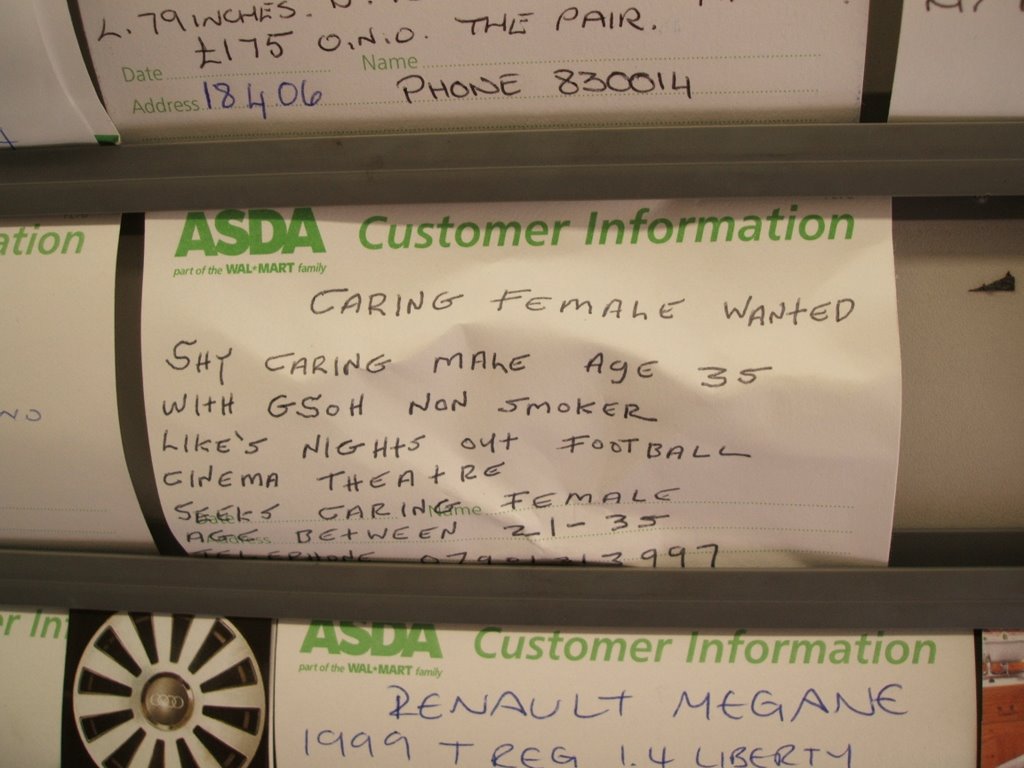 L. 79 INCHES.
£175 O.N.O. THE PAIR.
Date Name
Address 18 4 06 PHONE 830014
ation
ASDA Customer Information
part of the WAL★MART family
CARING FEMALE WANTED
SHY CARING MALE AGE 35
WITH GSOH NON SMOKER
LIKE'S NIGHTS OUT FOOTBALL
CINEMA THEATRE
SEEKS CARING FEMALE
Name
AGE BETWEEN 21-35
TELEPHONE
er In
ASDA Customer Information
part of the WAL★MART family
RENAULT MEGANE
1999 T REG 1.4 LIBERTY